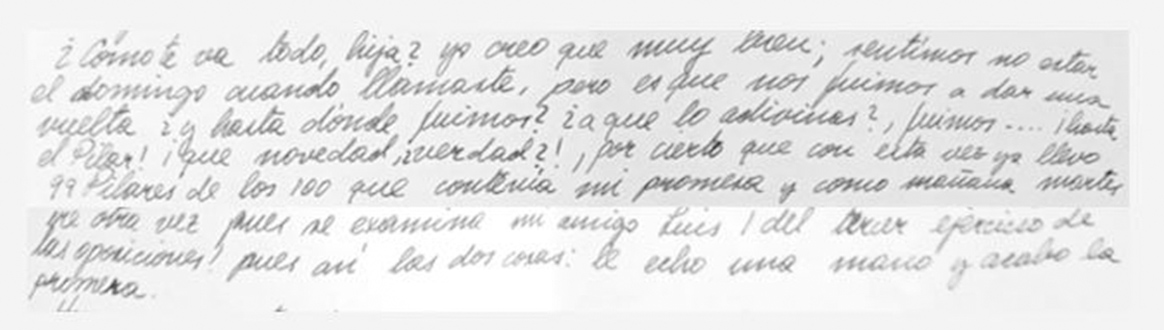 ¿Cómo te va todo, hija? yo creo que muy bien; sentimos no estar
el domingo cuando llamaste, pero es que nos fuimos a dar una
vuelta ¿y hasta dónde fuimos? ¿a que lo adivinas?, fuimos.... ¡hasta
el Pilar! ¡que novedad, ¿verdad?!, por cierto que con esta vez ya llevo
99 Pilares de los 100 que contenía mi promesa y como mañana martes
iré otra vez pues se examina mi amigo Luis ¡del tercer ejercicio de
las oposiciones! pues así las dos cosas: le echo una mano y acabo la
promesa.